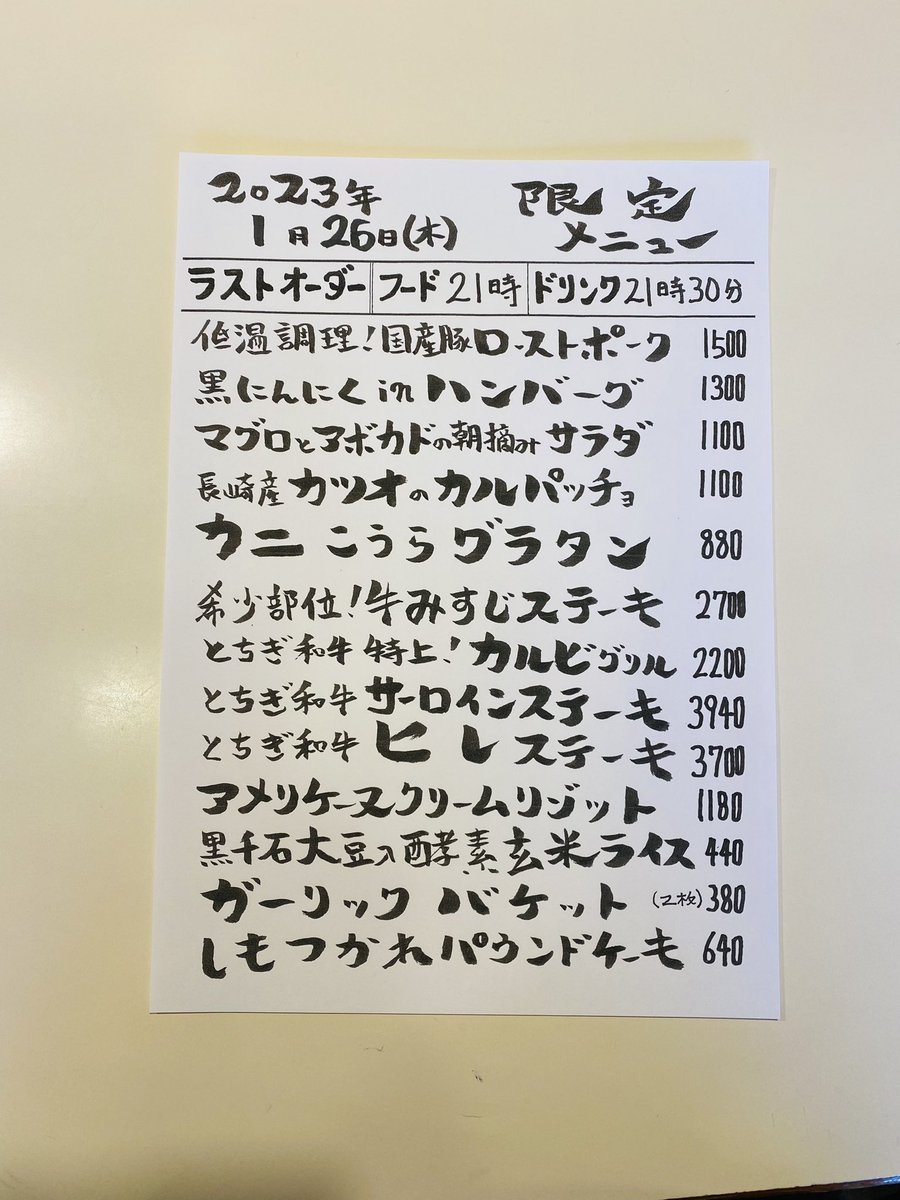 2023年
1月26日(木)
限定
メニュー
ラストオーダー フード21時 ドリンク21時30分
低温調理!国産豚ローストポーク 1500
黒にんにくinハンバーグ 1300
マグロとアボカドの朝摘みサラダ 1100
長崎産カツオのカルパッチョ 1100
カニこうらグラタン 880
希少部位!牛みすじステーキ 2700
とちぎ和牛特上!カルビグリル 2200
とちぎ和牛サーロインステーキ 3940
とちぎ和牛ヒレステーキ 3700
アメリケーヌクリームリゾット 1180
黒千石大豆入酵素玄米ライス 440
ガーリックバケット(2枚) 380
しもつかれパウンドケーキ 640